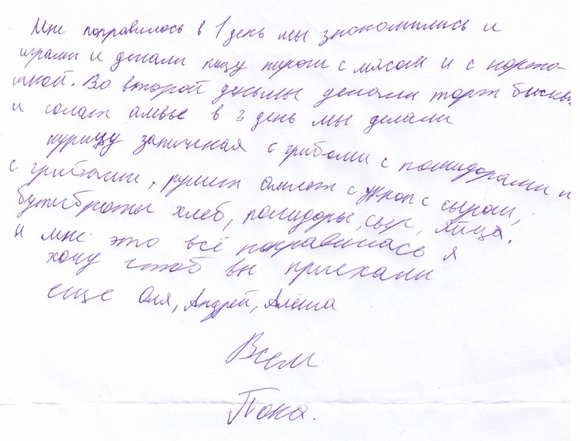 Мне понравилось в 1 день мы знокомились и
играли и делали пицу пироги с мясом и с карто
шкой. Во второй деньмы делали торт бискв
и солат аливье в 3 день мы делали
курицу запиченая с грибами с помидорами и
с грибами, рулет омлет с укроп с сыром,
бутиброты хлеб, помидоры, сыр, яйца.
и мне это всё понравилась я
хочу чтоб вы приехали
еще Оля, Андрей, Алёша
Всем
Пока.